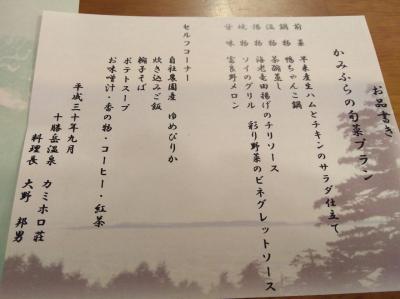 お品書き
かみふらの旬菜プラン
前菜 早来産生ハムとチキンのサラダ仕立て
鍋物 鴨ちゃんこ鍋
温物 茶碗蒸し
揚物 海老竜田揚げのチリソース
焼物 ソイのグリル 彩り野菜のビネグレットソース
甘味 富良野メロン
セルフコーナー
自社農園産 ゆめぴりか
炊き込みご飯
梅子そば
ポテトスープ
お味噌汁・香の物・コーヒー・紅茶
平成三十年九月
十勝岳温泉 カミホロ荘
料理長 大野 邦男